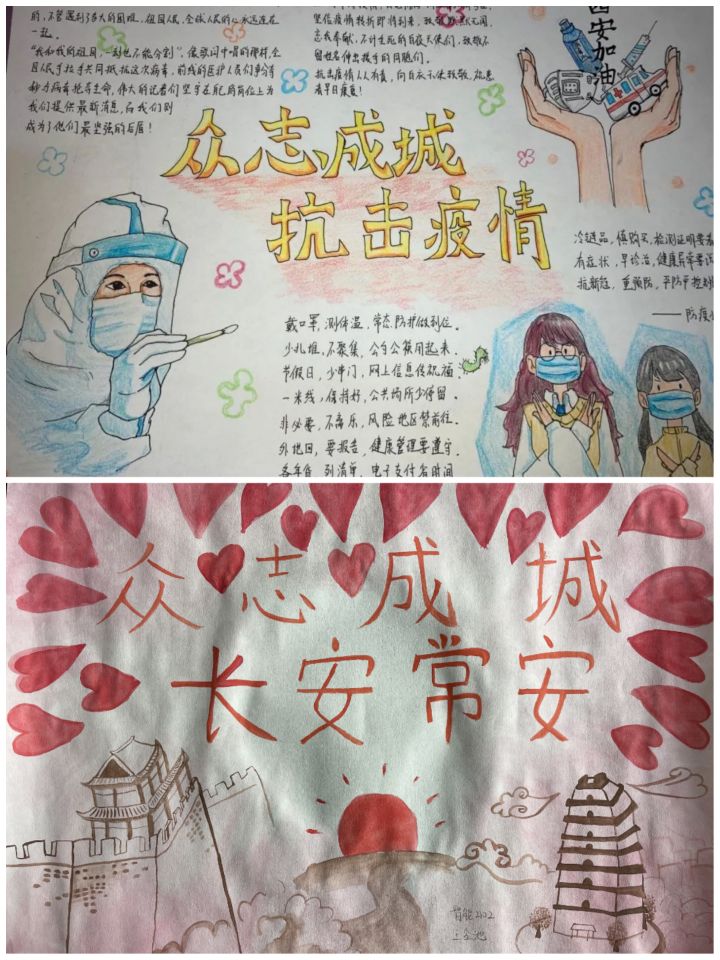 的,不管遇到了多大的困难,祖国人民,全球人民的心永远连在
一起。
“我和我的祖国,一刻也不能分割”,像歌词中唱的那样,全
国人民手拉手共同抵抗这次病毒,前线的医护人员们争分夺
秒为病毒抢夺生命,伟大的记者们坚守在肮脏岗位上为
我们提供最新消息,而我们则
成为了他们最坚强的后盾!
坚信疫情转折即将到来,致敬
忘我奉献,不计生死的白衣天使们,致敬不
留姓名伸出援手的同胞们。
抗击疫情人人有责,向白衣天使致敬,
春早日康复!
西安加油
众志成城
抗击疫情
冷链品,慎购买,检测证明要
有症状,早诊治,健康
抗新冠,重预防,平防
——防疫
戴口罩,测体温,常态防护做到位。
少扎堆,不聚集,公勺公筷用起来。
节假日,少串门,网上信息传祝福。
一米线,保持好,公共场所少停留。
非必要,不离乐,风险地区禁前往。
外地回,要报告,健康管理要遵守。
备年货,列清单,电子支付省时间
众志成城
长安常安
智能2102